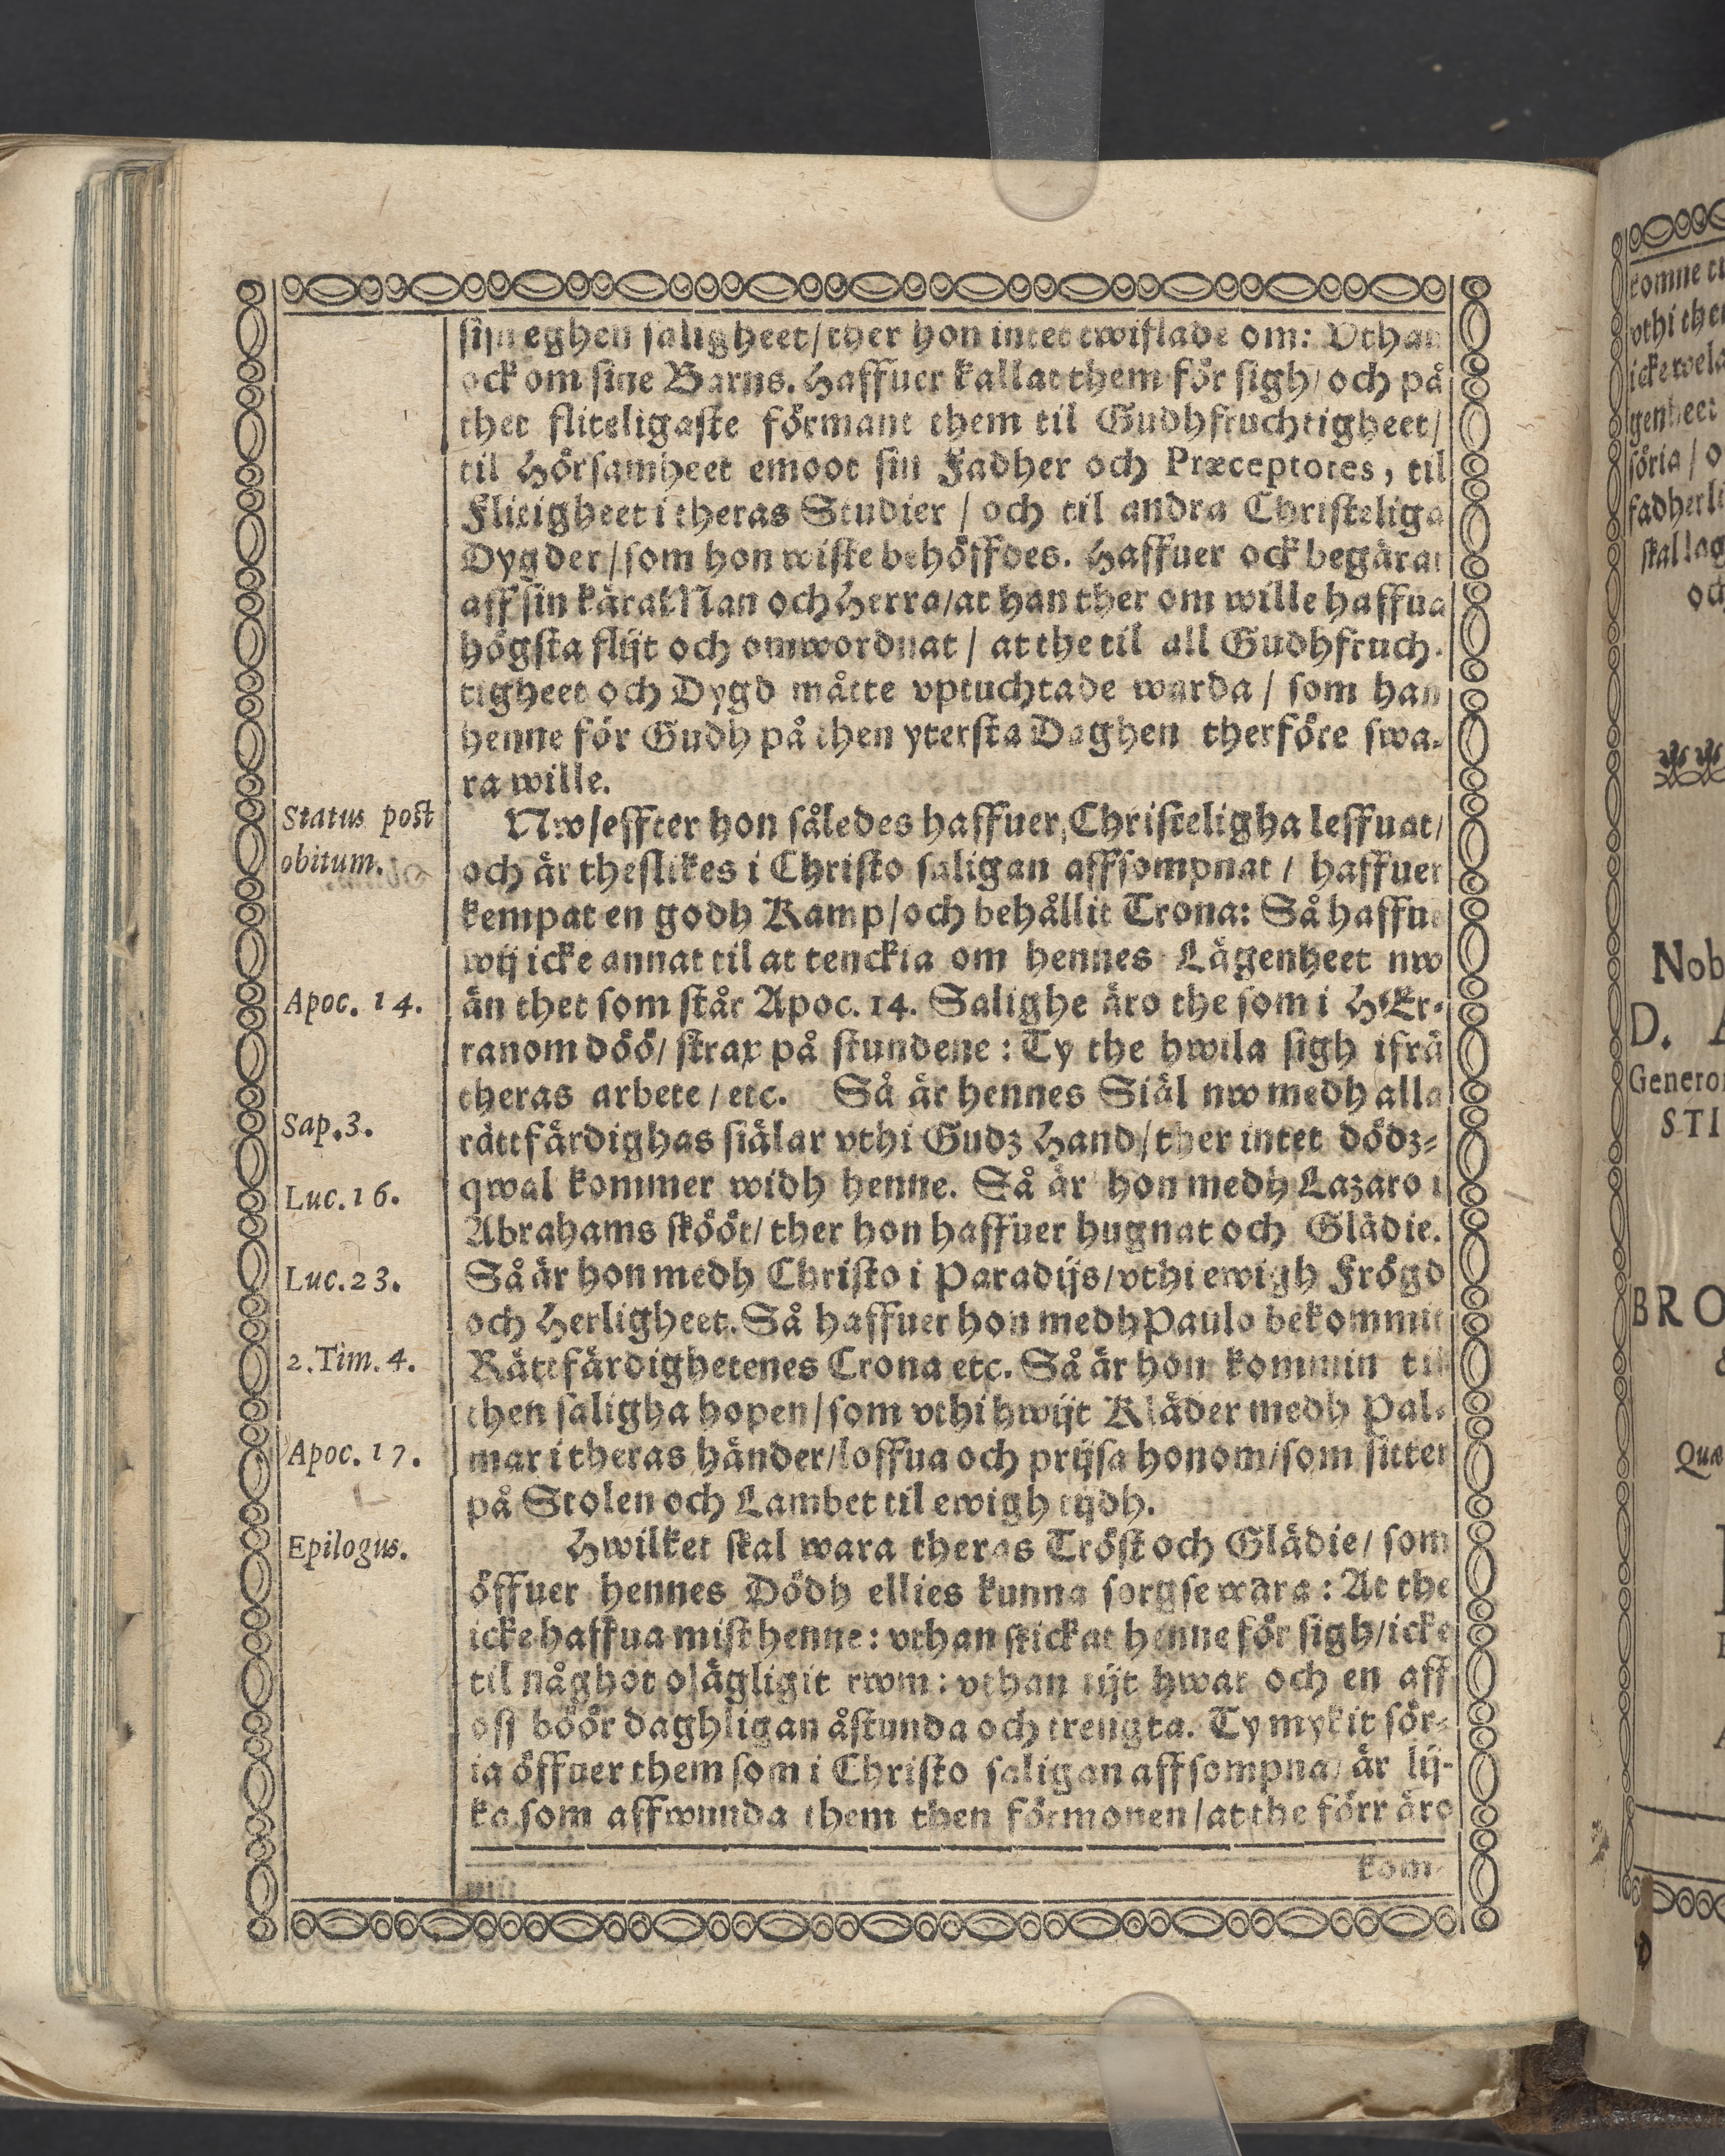 sijn eghen saligheet/ ther hon intet twiflade om: Vthan
ock om sine Barns. Haffuer kallat them för sigh/ och på
thet fliteligaste förmant them til Gudhfruchtigheet/
til Hörsamheet emoot sin Fadher och Præceptores, til
Flitigheet i theras Studier / och til andra Christeliga
Dygder/ som hon wiste behöffdes. Haffuer ock begärat
aff sin kära Man och Herra/ at han ther om wille haffua
högsta flijt och omwordnat / at the til all Gudhfruch-
tigheet och Dygd måtte vptuchtade warda / som han
henne för Gudh på then ytersta Daghen therföre swa-
ra wille.
Status post
obitum.
Nw/ effter hon således haffuer Christeligha leffuat/
och är theslikes i Christo saligan affsompnat / haffuer
kempat en godh Kamp/ och behållit Trona: Så haffue
wij icke annat til at tenckia om hennes Lägenheet nw
Apoc. 14.
än thet som står Apoc. 14. Salighe äro the som i HEr-
ranom döö/ strax på stundene : Ty the hwila sigh ifrå
theras arbete / etc. Så är hennes Siäl nw medh alla
Sap.3.
rättfärdighas siälar vthi Gudz Hand/ ther intet dödz-
Luc.16.
qwal kommer widh henne. Så är hon medh Lazaro i
Abrahams skööt/ ther hon haffuer hugnat och Glädie.
Luc.23.
Så är hon medh Christo i Paradijs/ vthi ewigh Frögd
och Herligheet. Så haffuer hon medh Paulo bekommit
2.Tim.4.
Rättfärdighetenes Crona etc. Så är hon kommin til
then saligha hopen/ som vthi hwijt Kläder medh Pal-
Apoc. 17.
mar i theras händer/ loffua och prijsa honom/ som sitter
på Stolen och Lambet til ewigh tijdh.
Epilogus.
Hwilket skal wara theras Tröst och Glädie/ som
öffuer hennes Dödh ellies kunna sorgse wara : At the
icke haffua mist henne : vthan skickat henne för sigh/ icke
til någhot olägligit rwm : vthan tijt hwar och en aff
oss böör daghligan åstunda och trengta. Ty mykit sör-
ia öffuer them som i Christo saligan affsompna/ är lij-
ka som affwunda them then förmonen/ at the förr äro
kom-